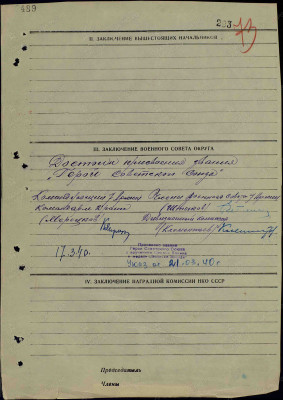 489
283
II. ЗАКЛЮЧЕНИЕ ВЫШЕСТОЯЩИХ НАЧАЛЬНИКОВ
III. ЗАКЛЮЧЕНИЕ ВОЕННОГО СОВЕТА ОКРУГА
Достоин присвоения звания
"Герой Советского Союза"
Командующий 7 Армией
Командарм 2 ранга
(Мерецков)
17.3.40.
Присвоено звание
Героя Советского Союза
Указ от 21.03.40 г.
IV. ЗАКЛЮЧЕНИЕ НАГРАДНОЙ КОМИССИИ НКО СССР
Председатель
Члены